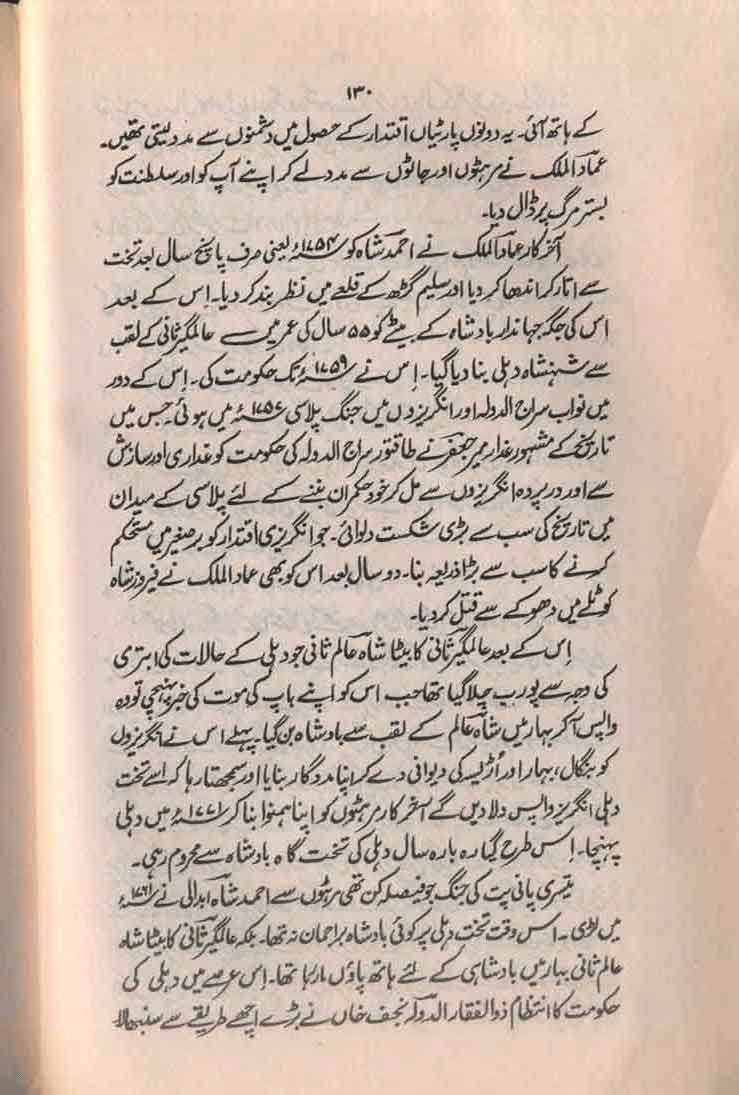 ۱۳۰
کے ہاتھ آئی۔ یہ دونوں پارٹیاں اقتدار کے حصول میں دشمنوں سے مدد لیتی تھیں۔
عماد الملک نے مرہٹوں اور جاٹوں سے مدد لے کر اپنے آپ کو اور سلطنت کو
بستر مرگ پر ڈال دیا۔
آخر کار عماد الملک نے احمد شاہ کو ۱۷۵۴ء یعنی صرف پانچ سال بعد تخت
سے اتار کر اندھا کر دیا اور سلیم گڑھ کے قلعے میں نظر بند کر دیا۔ اس کے بعد
اس کی جگہ جہاندار بادشاہ کے بیٹے کو ۵۵ سال کی عمر میں عالمگیر ثانی کے لقب
سے شہنشاہ دہلی بنا دیا گیا۔ اس نے ۱۷۵۹ء تک حکومت کی۔ اس کے دور
میں نواب سراج الدولہ اور انگریزوں میں جنگ پلاسی ۱۷۵۷ء میں ہوئی۔ جس میں
تاریخ کے مشہور غدار میر جعفر نے طاقتور سراج الدولہ کی حکومت کو غداری اور سازش
سے اور در پردہ انگریزوں سے مل کر خود حکمران بننے کے لئے پلاسی کے میدان
میں تاریخ کی سب سے بڑی شکست دلوائی۔ جو انگریزی اقتدار کو برصغیر میں مستحکم
کرنے کا سب سے بڑا ذریعہ بنا۔ دو سال بعد اس کو بھی عماد الملک نے فیروز شاہ
کوٹلے میں دھوکے سے قتل کر دیا۔
اس کے بعد عالمگیر ثانی کا بیٹا شاہ عالم ثانی جو دہلی کے حالات کی ابتری
کی وجہ سے پورب چلا گیا تھا جب اس کو اپنے باپ کی موت کی خبر پہنچی تو وہ
واپس آ کر بہار میں شاہ عالم کے لقب سے بادشاہ بن گیا۔ پہلے اس نے انگریزوں
کو بنگال، بہار اور اُڑیسہ کی دیوانی دے کر اپنا مددگار بنایا اور سمجھتا رہا کہ اسے تخت
دہلی انگریز واپس دلا دیں گے آخر کار مرہٹوں کو اپنا ہمنوا بنا کر ۱۷۷۱ء میں دہلی
پہنچا۔ اس طرح گیارہ بارہ سال دہلی کی تخت گاہ بادشاہ سے محروم رہی۔
تیسری پانی پت کی جنگ جو فیصلہ کن تھی مرہٹوں سے احمد شاہ ابدالی نے ۱۷۶۱ء
میں لڑی۔ اس وقت تخت دہلی پر کوئی بادشاہ براجمان نہ تھا۔ بلکہ عالمگیر ثانی کا بیٹا شاہ
عالم ثانی بہار میں بادشاہی کے لئے ہاتھ پاؤں مار رہا تھا۔ اس عرصے میں دہلی کی
حکومت کا انتظام ذوالفقار الدولہ نجف خاں نے بڑے اچھے طریقے سے سنبھالا